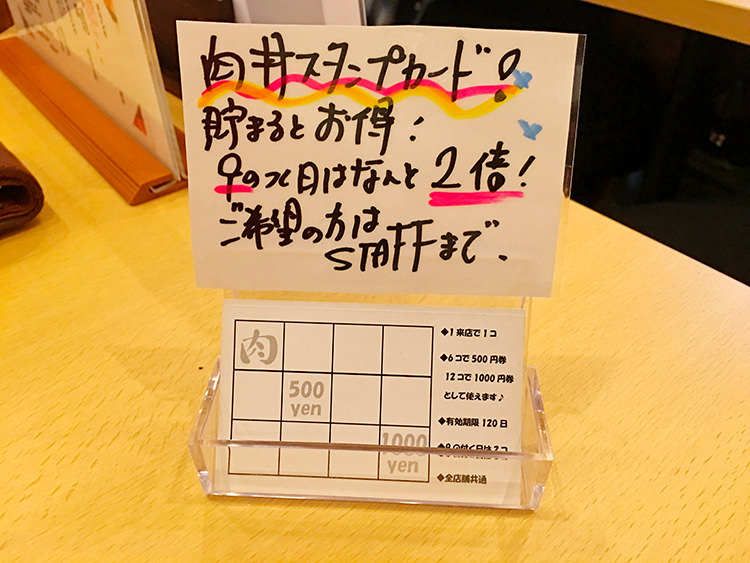 肉丼スタンプカード!
貯まるとお得!
9のつく日はなんと2倍!
ご希望の方は
STAFFまで、
肉
500
yen
1000
yen
◆1来店で1コ
◆6コで500円券
12コで1000円券
として使えます♪
◆有効期限120日
◆9の付く日は2コ
◆全店舗共通